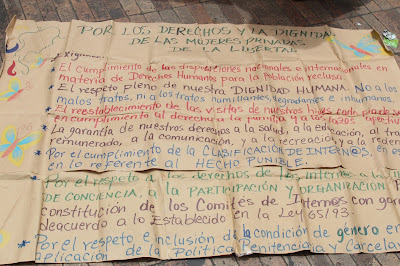 POR LOS DERECHOS Y LA DIGNIDAD
DE LAS MUJERES PRIVADAS
DE LA LIBERTAD
Exigimos:
El cumplimiento de las disposiciones nacionales e internacionales en
materia de Derechos Humanos para la Población reclusa.
* El respeto pleno de nuestra DIGNIDAD HUMANA. No a los
malos tratos, ni a los tratos humillantes, degradantes e inhumanos.
* El reestablecimiento de las visitas de nuestros
cumplimiento al derecho a la familia y a los
* La garantía de nuestros derechos a la Salud, a la educación, al tra
remunerado, a la comunicación, y a la recreación y a la reden
* Por el cumplimiento de la CLASIFICACIÓN DE INTERN@S, en es
en lo referente al HECHO PUNIBLE.
Por el respeto a los derechos de los internos a la
DE CONCIENCIA, a la PARTICIPACIÓN Y ORGANIZACIÓN. P
constitución de los Comités de Internos con gara
deacuerdo a lo Establecido en la Ley 65/93.
* Por el respeto e inclusión de la condición de género en
aplicación de la Política Penitencia y Carcela